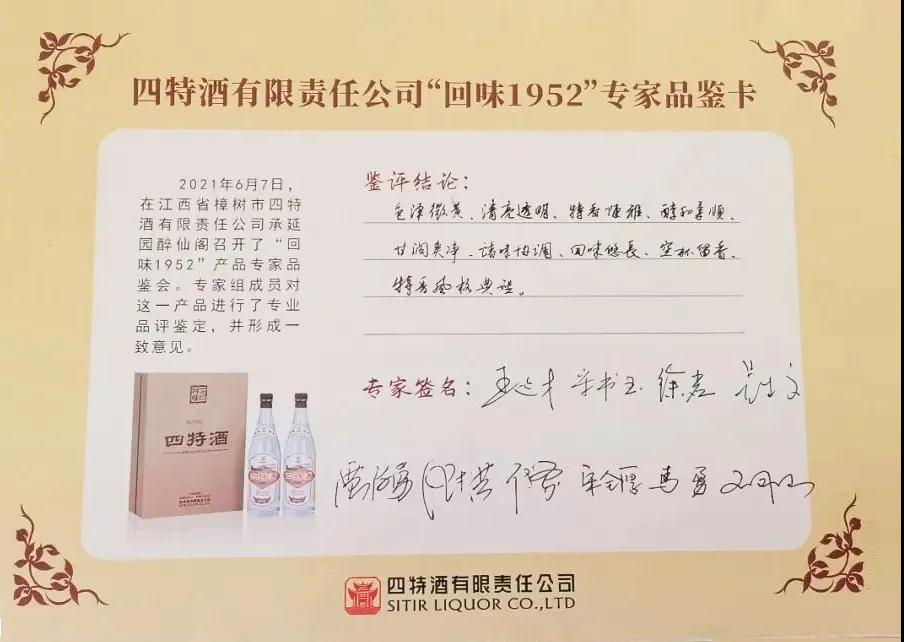 四特酒有限责任公司“回味1952”专家品鉴卡
2021年6月7日，
在江西省樟树市四特
酒有限责任公司承延
园醉仙阁召开了“回
味1952”产品专家品
鉴会。专家组成员对
这一产品进行了专业
品评鉴定，并形成一
致意见。
鉴评结论：
色泽微黄、清亮透明、特香优雅、醇和柔顺、
甘润爽净、诸味协调、回味悠长、空杯留香，
特香风格典型。
专家签名：
王延才 徐岩
马勇
四特酒
四特酒有限责任公司
SITIR LIQUOR CO.,LTD